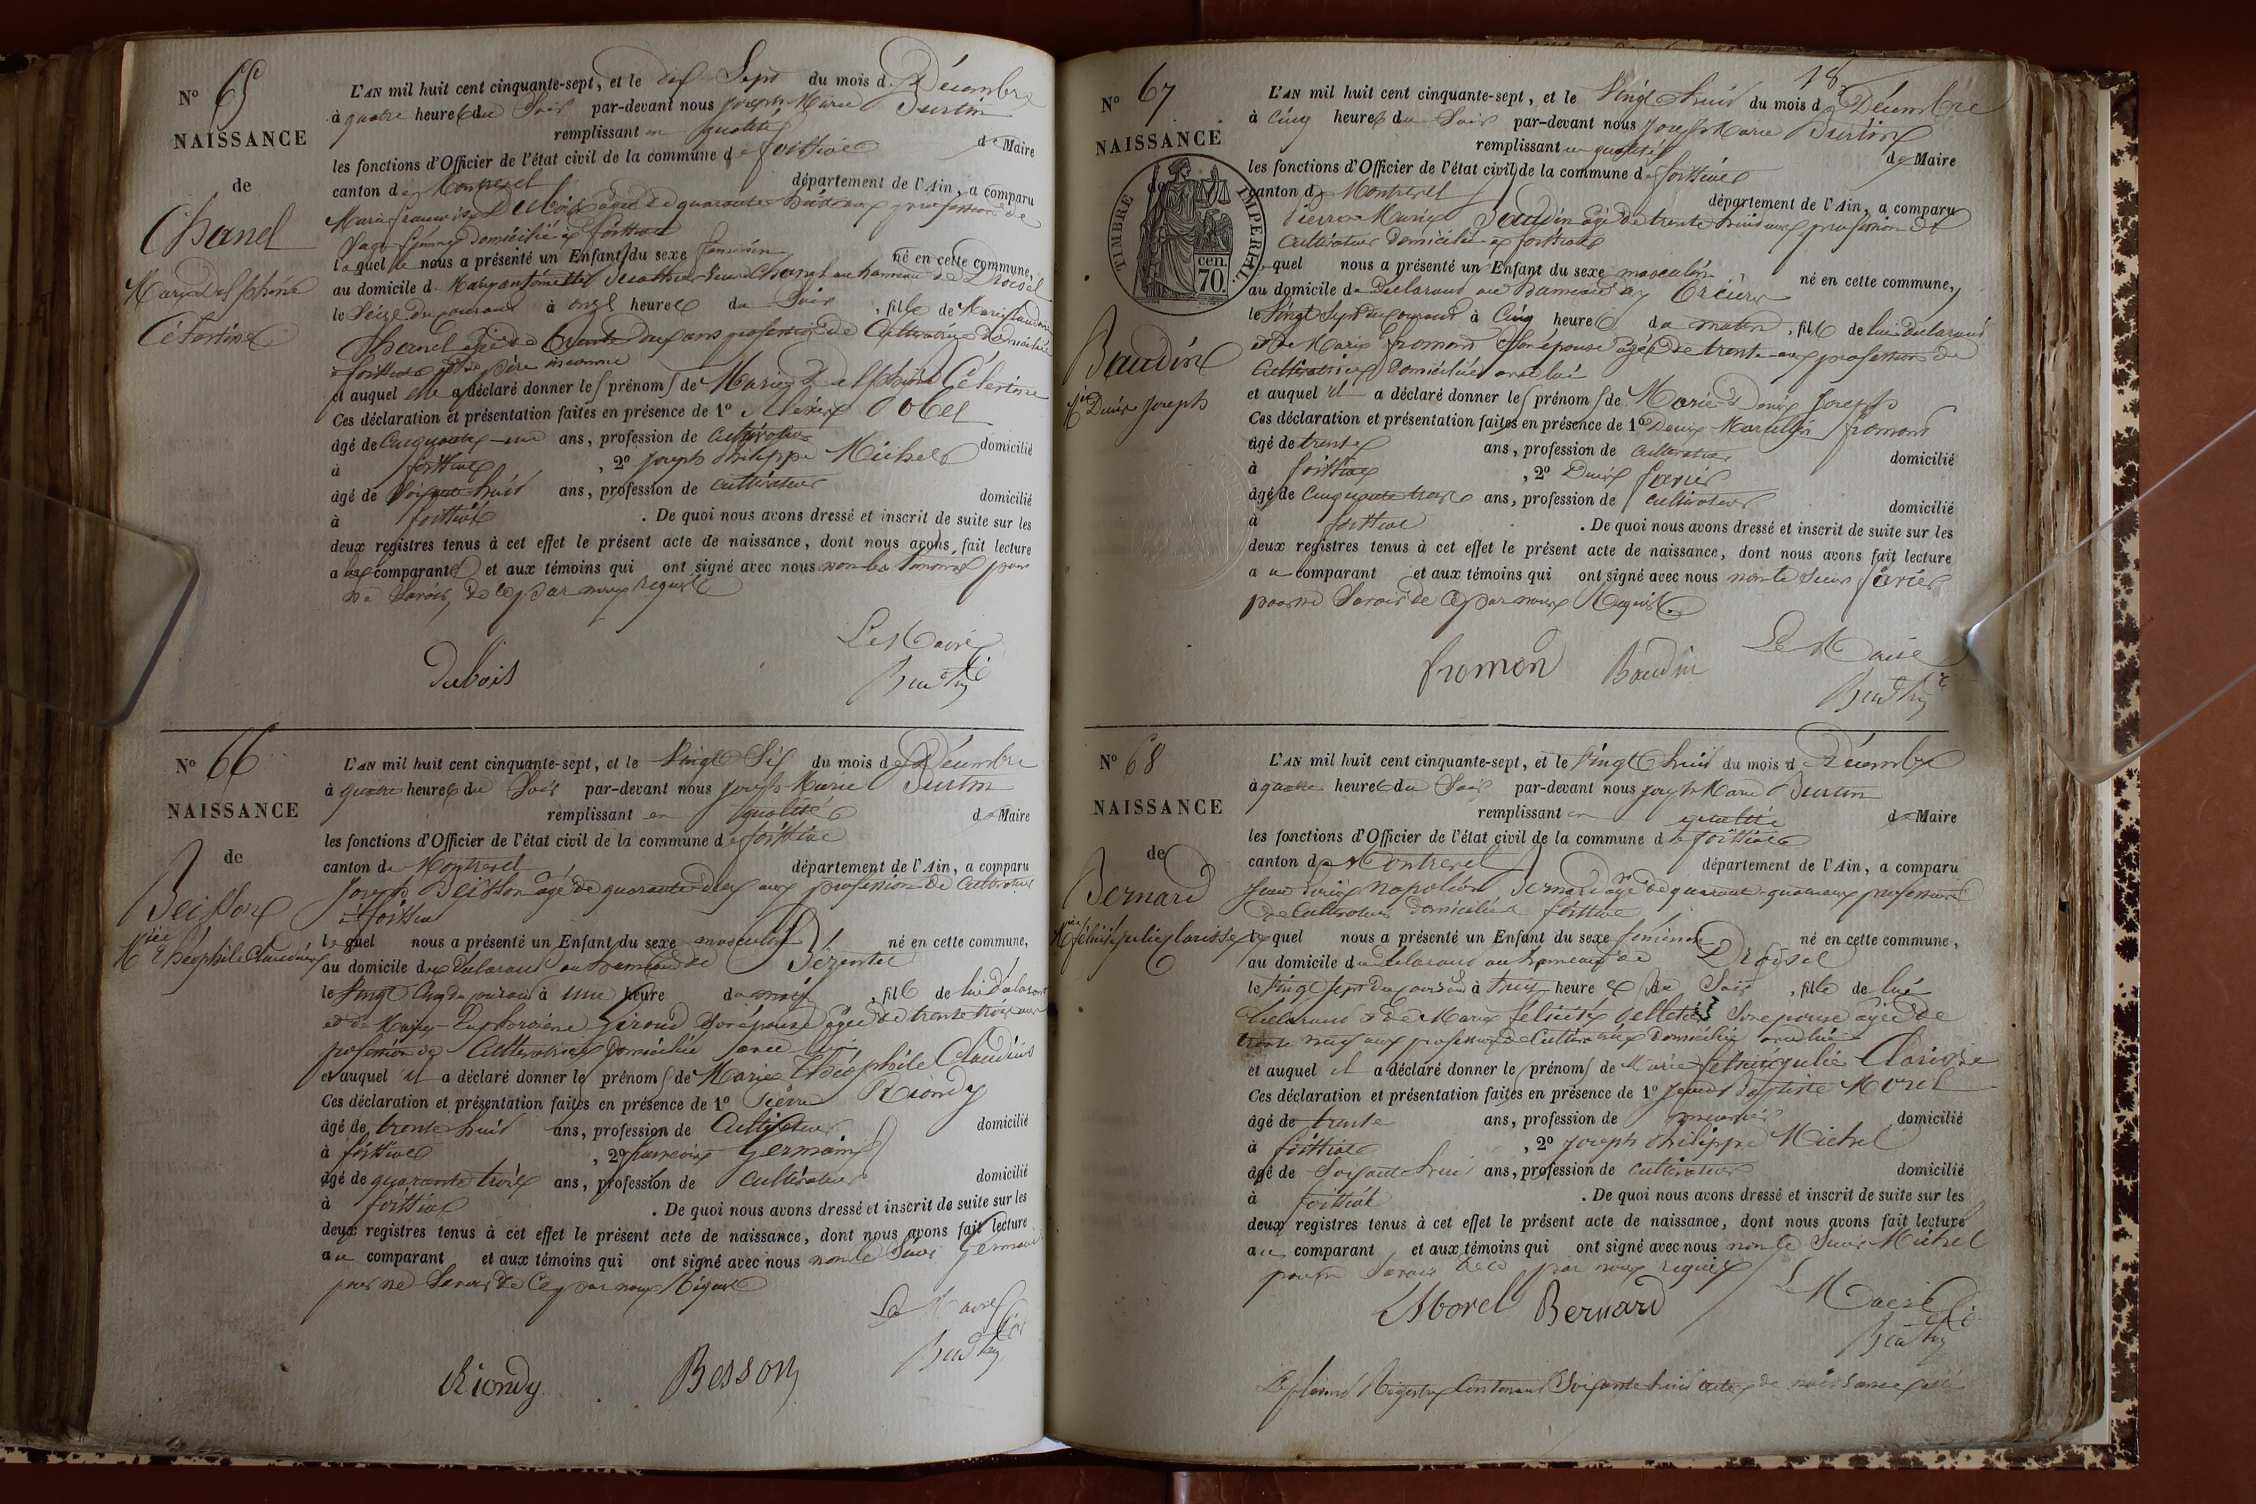 N° 65
NAISSANCE
de
Chanel
Marie Delphine
Célestine
L'AN mil huit cent cinquante-sept, et le dix Sept du mois de Décembre
à quatre heures du Soir par-devant nous Joseph Marie Burtin
remplissant en qualité de Maire
les fonctions d'Officier de l'état civil de la commune de foissiat
canton de Montrevel département de l'Ain, a comparu
Marie françoise Dubois âgée de quarante huit ans profession de
Sage femme domiciliée à foissiat
laquelle nous a présenté un Enfant du sexe féminin né en cette commune,
au domicile de Marie antoinette veuve Chanel au hameau de
le Seize du courant à onze heures du Soir, fille de Marie Claudine
Chanel âgée de trente deux ans profession de Cultivatrice domiciliée
à foissiat et de père inconnu
et auquel elle a déclaré donner les prénoms de Marie Delphine Célestine
Ces déclaration et présentation faites en présence de 1° Alexis Pobel
âgé de Cinquante-un ans, profession de Cultivateur domicilié
à foissiat, 2° Joseph Philippe Michel
âgé de Soixante huit ans, profession de cultivateur domicilié
à foissiat. De quoi nous avons dressé et inscrit de suite sur les
deux registres tenus à cet effet le présent acte de naissance, dont nous avons fait lecture
aux comparants et aux témoins qui ont signé avec nous non les témoins pour
ne Savoir, de ce par nous requis
Le Maire
Dubois Burtin
N° 66
NAISSANCE
de
Beisson
Mie Théophile Claudius
L'AN mil huit cent cinquante-sept, et le Vingt Six du mois de Décembre
à quatre heures du Soir par-devant nous Joseph Marie Burtin
remplissant en qualité de Maire
les fonctions d'Officier de l'état civil de la commune de foissiat
canton de Montrevel département de l'Ain, a comparu
Joseph Beisson âgé de quarante deux ans profession de Cultivateur
à foissiat
lequel nous a présenté un Enfant du sexe masculin né en cette commune,
au domicile du déclarant au hameau de Bézentet
le Vingt Cinq du courant à une heure du matin, fils de lui déclarant
et de Marie Euphrosine Giroud Son épouse âgée de trente trois ans
profession de Cultivatrice domiciliée avec lui
et auquel il a déclaré donner les prénoms de Marie Théophile Claudius
Ces déclaration et présentation faites en présence de 1° Pierre Riondy
âgé de trente huit ans, profession de Cultivateur domicilié
à foissiat, 2° françois Germain
âgé de quarante trois ans, profession de Cultivateur domicilié
à foissiat. De quoi nous avons dressé et inscrit de suite sur les
deux registres tenus à cet effet le présent acte de naissance, dont nous avons fait lecture
au comparant et aux témoins qui ont signé avec nous non le Sieur Germain
pour ne Savoir de Ce par nous Requis
Le Maire
Riondy Besson Burtin
18
N° 67
NAISSANCE
de
TIMBRE IMPERIAL
70 cen.
Baudin
Mie Denis Joseph
L'AN mil huit cent cinquante-sept, et le Vingt huit du mois de Décembre
à Cinq heures du Soir par-devant nous Joseph Marie Burtin
remplissant en qualité de Maire
les fonctions d'Officier de l'état civil de la commune de foissiat
canton de Montrevel département de l'Ain, a comparu
Pierre Marie Baudin âgé de trente huit ans profession de
Cultivateur domicilié à foissiat
lequel nous a présenté un Enfant du sexe masculin, né en cette commune,
au domicile du déclarant au hameau de Crciers
le Vingt Sept du courant à Cinq heures du matin, fils de lui déclarant
et de Marie fromont Son épouse âgée de trente ans profession de
Cultivatrice domiciliée avec lui
et auquel il a déclaré donner les prénoms de Marie Denis Joseph
Ces déclaration et présentation faites en présence de 1° Denis Marcelin fromont
âgé de trente ans, profession de Cultivateur domicilié
à foissiat, 2° Denis favier
âgé de Cinquante trois ans, profession de cultivateur domicilié
à foissiat. De quoi nous avons dressé et inscrit de suite sur les
deux registres tenus à cet effet le présent acte de naissance, dont nous avons fait lecture
au comparant et aux témoins qui ont signé avec nous non le Sieur favier
pour ne Savoir de Ce par nous Requis
Le Maire
fromon Baudin Burtin
N° 68
NAISSANCE
de
Bernard
Mie félicité julie Clarisse
L'AN mil huit cent cinquante-sept, et le Vingt huit du mois de Décembre
à quatre heures du Soir par-devant nous Joseph Marie Burtin
remplissant en qualité de Maire
les fonctions d'Officier de l'état civil de la commune de foissiat
canton de Montrevel département de l'Ain, a comparu
Jean Louis Napoléon Bernard âgé de quarante-quatre ans profession
de Cultivateur domicilié à foissiat
lequel nous a présenté un Enfant du sexe féminin né en cette commune,
au domicile du déclarant au hameau de
le Vingt sept du courant à trois heures du Soir, fille de lui
déclarant et de Marie félicité pelletier Son épouse âgée de
trente neuf ans profession de Cultivatrice domiciliée avec lui
et auquel il a déclaré donner les prénoms de Marie félicité julie Clarisse
Ces déclaration et présentation faites en présence de 1° Jean Baptiste Morel
âgé de trente ans, profession de domicilié
à foissiat, 2° Joseph Philippe Michel
âgé de Soixante huit ans, profession de cultivateur domicilié
à foissiat. De quoi nous avons dressé et inscrit de suite sur les
deux registres tenus à cet effet le présent acte de naissance, dont nous avons fait lecture
au comparant et aux témoins qui ont signé avec nous non le Sieur Michel
pour ne Savoir de ce par nous requis
Le Maire
Morel Bernard Burtin
Le présent Registre Contenant Soixante huit actes de naissance